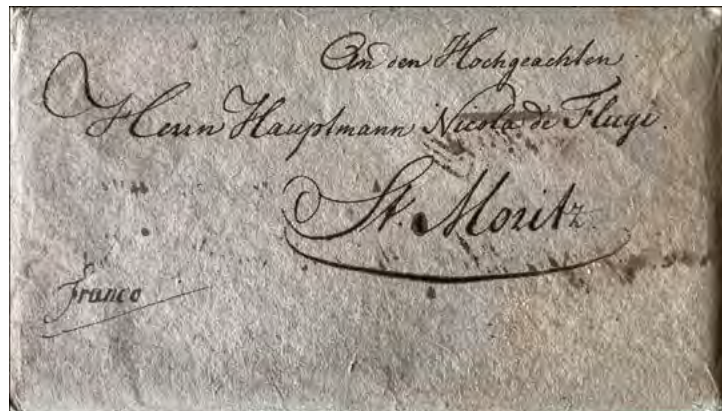 An den Hochgeachten
Herrn Hauptmann Nicola de Flugi.
St. Moritz
franco